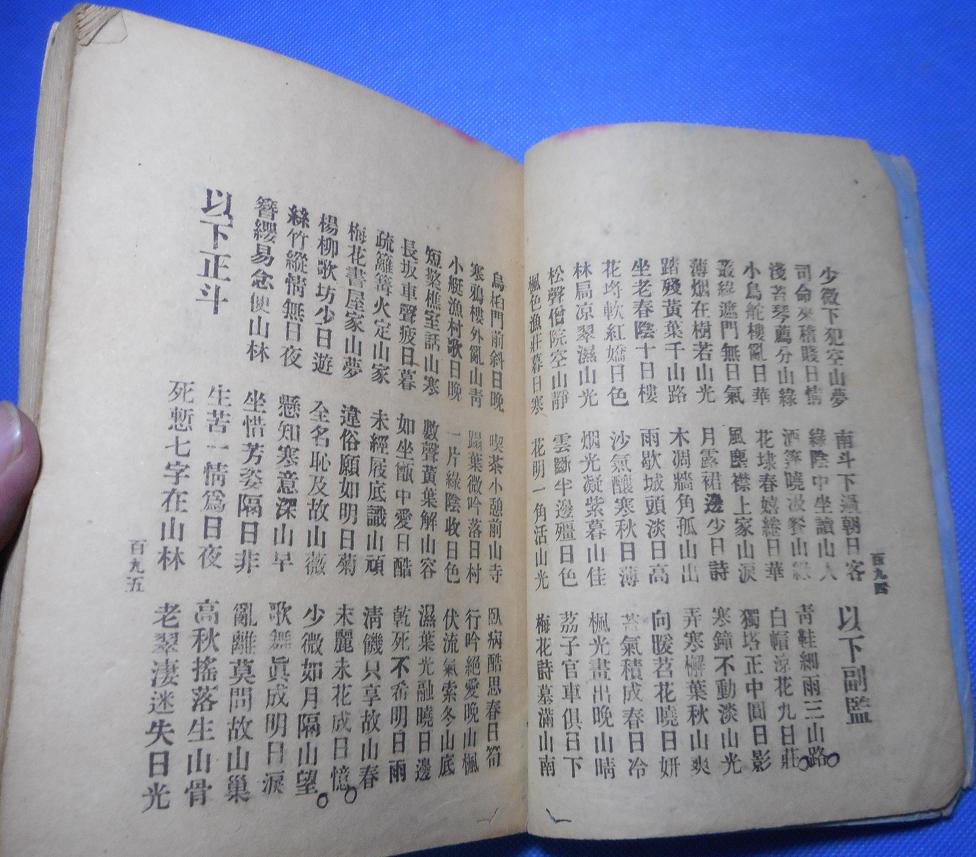 百九四
少微下犯空山夢
司命來稽賤日情
淺苔琴薦分山綠
小鳥舵樓亂日華
叢綠遮門無日氣
薄烟在樹若山光
踏殘黃葉千山路
坐老春陰十日樓
花埓軟紅嬌日色
林局凉翠濕山光
松聲僧院空山靜
楓色漁莊暮日寒
南斗下過朝日客
綠陰中坐讀山人
酒曉山綠
花埭春嬉綣日華
風塵襟上家山淚
月露裙邊少日詩
木凋牆角孤山出
雨歇城頭淡日高
沙氣釀寒秋日薄
烟光凝紫暮山佳
雲斷半邊殭日色
花明一角活山光
以下副監
青鞋細雨三山路
白帽涼花九日莊
獨塔正中圓日影
寒鐘不動淡山光
弄寒懈葉秋山爽
向暖茗花曉日妍
苔氣積成春日冷
楓光畫出晚山晴
荔子官車俱日下
梅花詩墓滿山南
烏桕門前斜日晚
寒鴉樓外亂山青
小艇漁村歌日晚
短檠樵室話山寒
長坂車聲疲日暮
疏籬篝火定山家
梅花書屋家山夢
楊柳歌坊少日遊
絲竹縱情無日夜
簪纓易念便山林
以下正斗
喫茶小憩前山寺
蹋葉微吟落日村
一片綠陰收日色
數聲黃葉解山容
如坐甑中愛日酷
未經屐底識山頑
違俗願如明日菊
全名恥及故山薇
懸知寒意深山早
坐惜芳姿隔日非
生苦一情爲日夜
死慙七字在山林
臥病酷思春日筍
行吟絕愛晚山楓
伏流氣索冬山底
濕葉光融曉日邊
乾死不希明日雨
清饑只享故山春
未麗未花成日憶
少微如月隔山望
歌舞眞成明日淚
亂離莫問故山巢
高秋搖落生山骨
老翠淒迷失日光
百九五